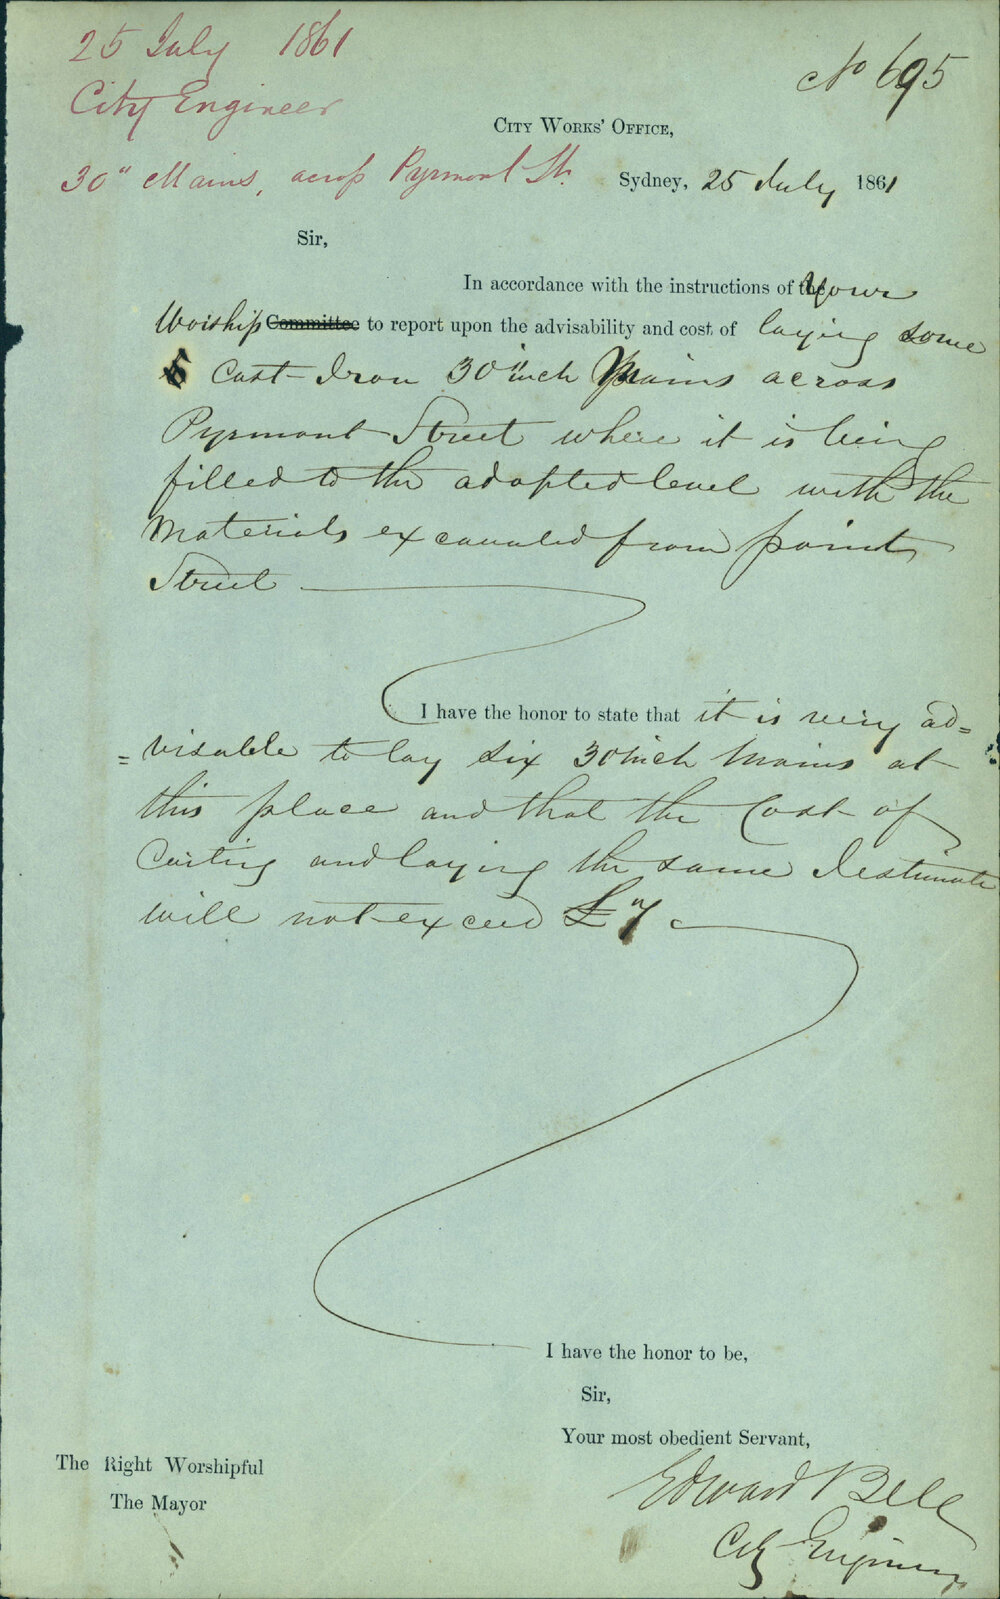 25 July 1861
City Engineer
30" Mains, across Pyrmont St.
No 695
City Works' Office,
Sydney, 25 July 1861
Sir,
In accordance with the instructions of the Your
Worship Committee to report upon the advisability and cost of laying some
Cast-Iron 30 inch Mains across
Pyrmont Street where it is being
filled to the adopted level with the
Materials excavated from point
Street
I have the honor to state that it is very ad=
=visable to lay six 30 inch Mains at
this place and that the Cost of
Carting and laying the same I estimate
will not exceed £7
I have the honor to be,
Sir,
Your most obedient Servant,
Edward Bell
City Engineer
The Right Worshipful
The Mayor